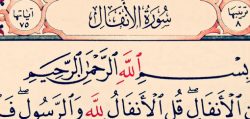 ترتيبها ٨ سُورَةُ الأَنْفَالِ آياتها ٧٥
بِسْمِ ٱللَّهِ ٱلرَّحْمَٰنِ ٱلرَّحِيمِ
ٱلْأَنفَالِ ۖ قُلِ ٱلْأَنفَالُ لِلَّهِ وَٱلرَّسُولِ ۖ